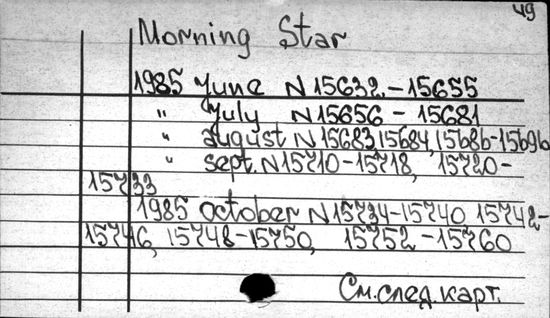 49
Morning Star
1985 June N 15632-15655
" July N 15656 - 15681
" august N 15683, 15684, 15686-15696
" sept. N 15710-15718, 15720-
15733
1985 october N 15734-15740, 15742-
15746, 15748-15750, 15752-15760
См. след. карт.